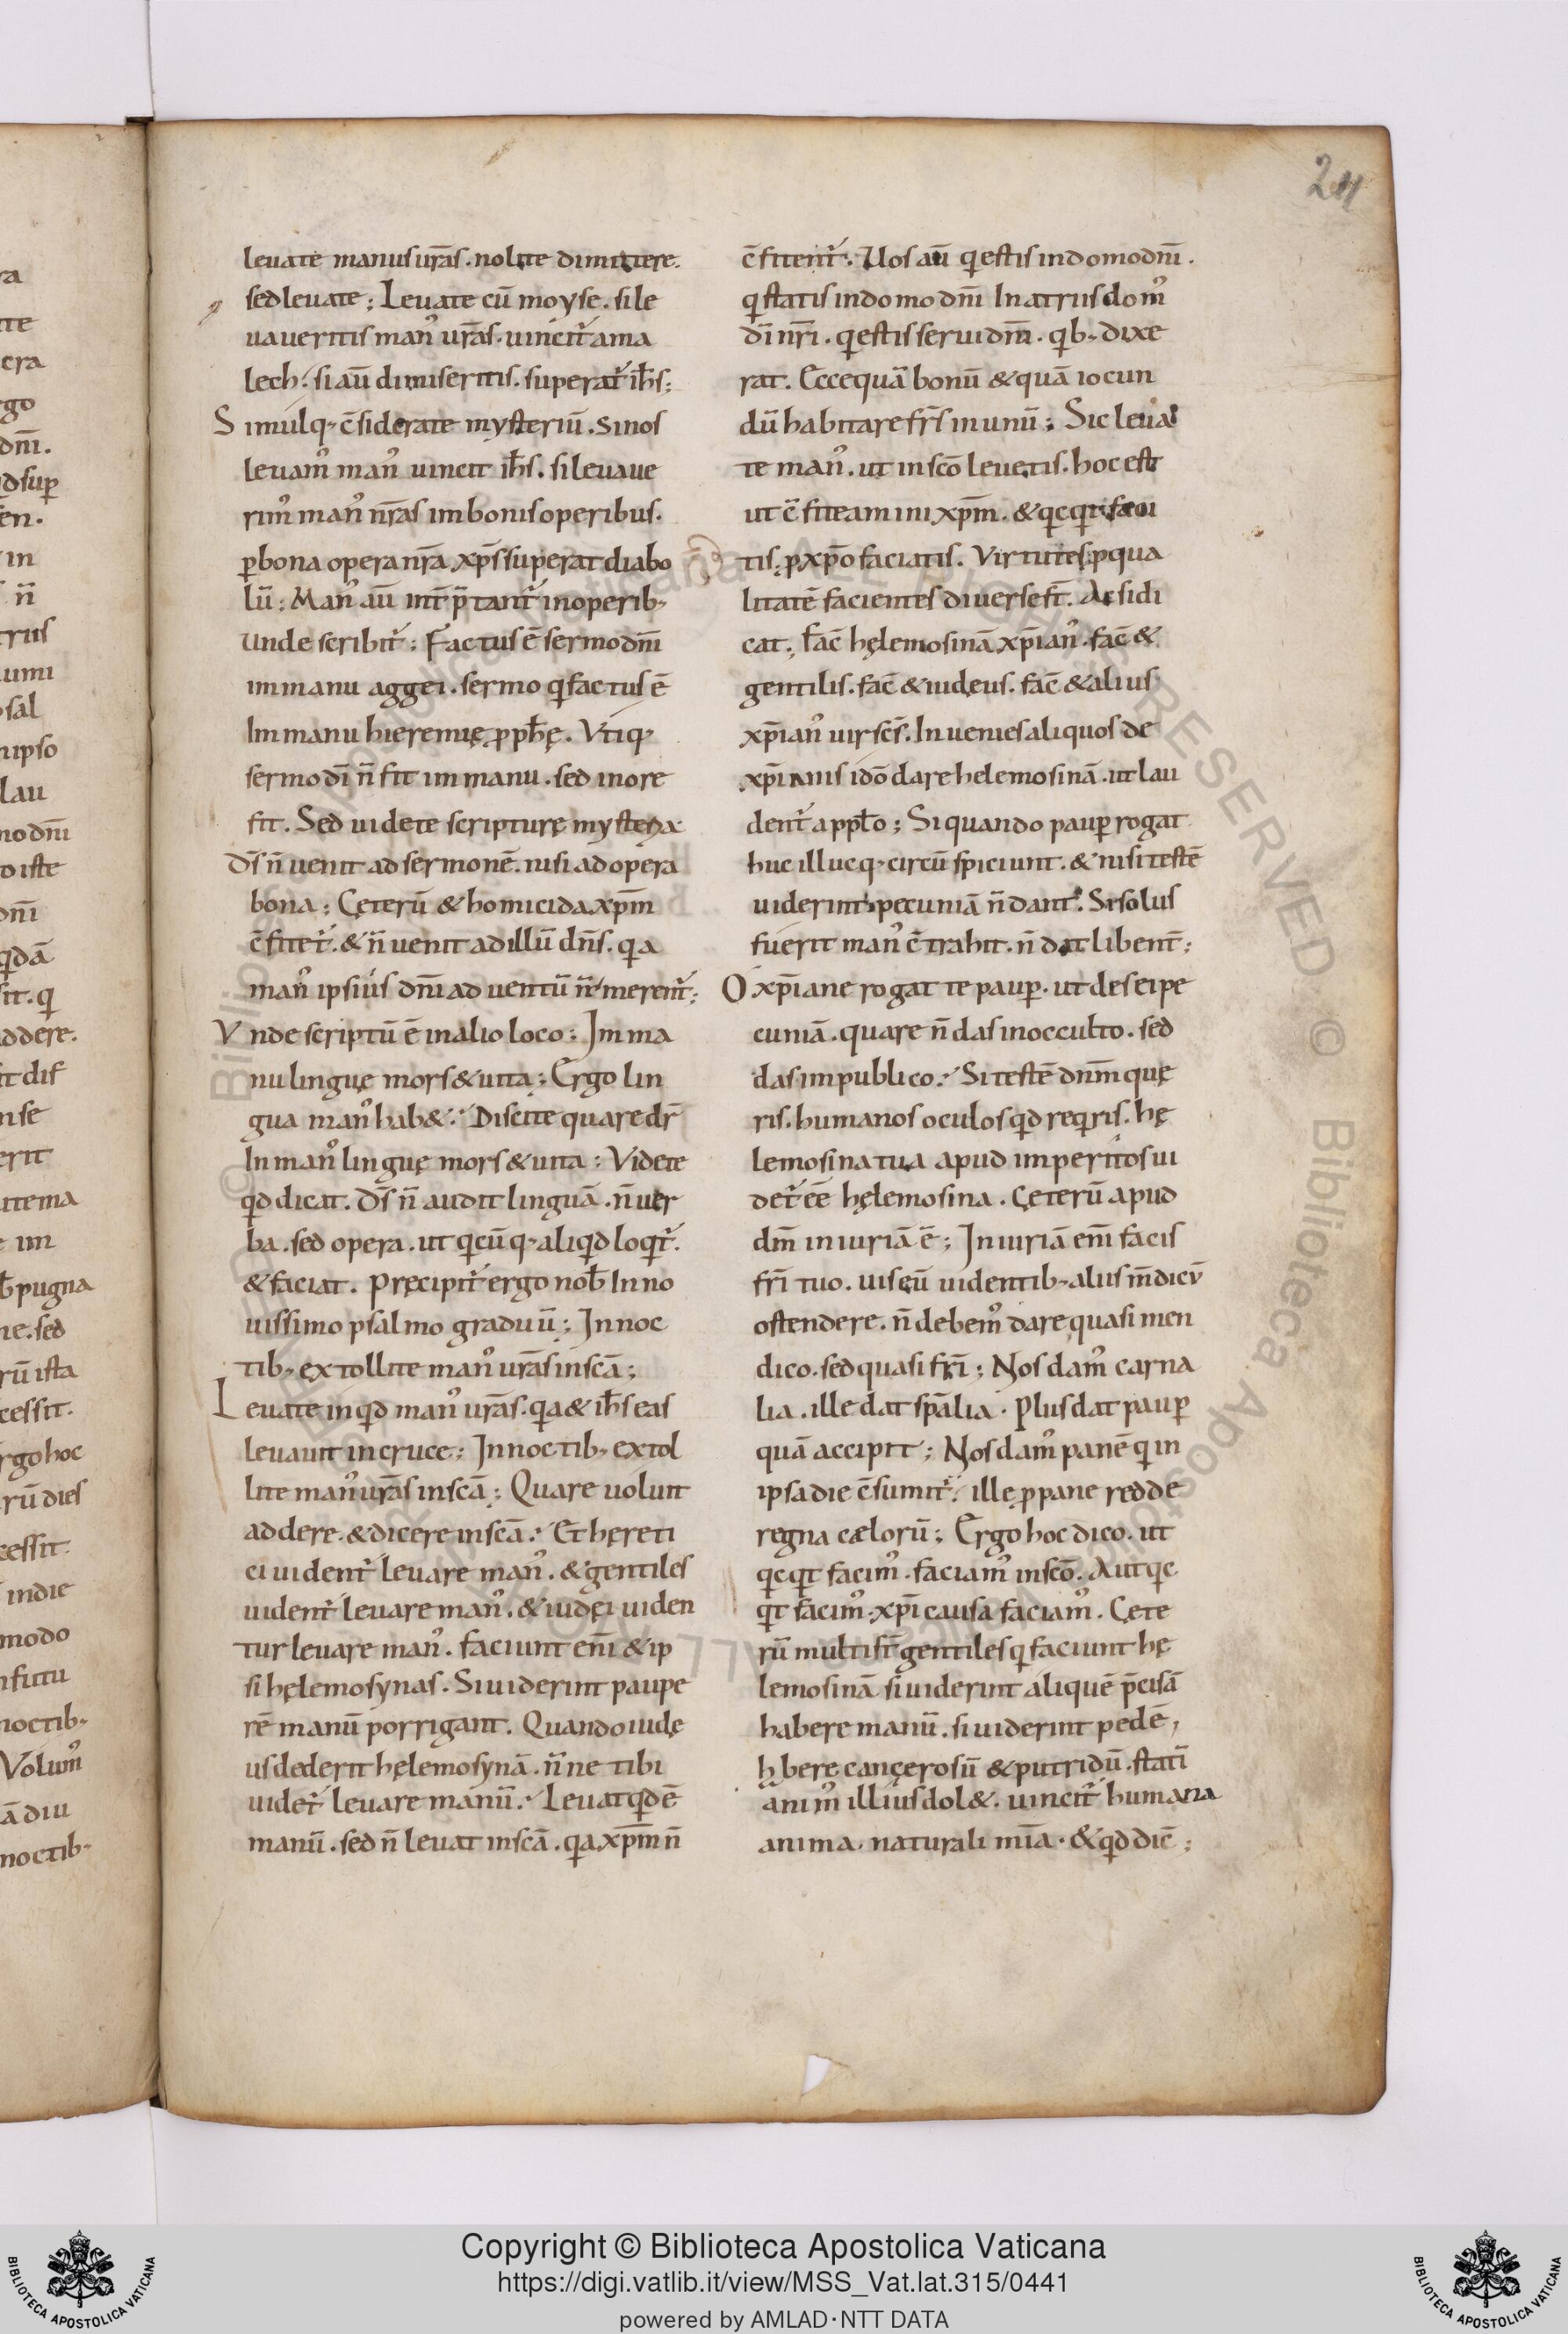 levate manus urãs . nolite dimittere .
sed levate ; Levate cũ moyse . si le
vaveritis man᾽ urãs . vincit᷑ ama
lech . si aũ dimiseritis . superat᷑ ih̅s ;
Simulq; c̅siderate mysteriũ . si nos
levam᾽ man᾽ vincit ih̅s . si levave
rim᾽ man᾽ nr̃as im bonis operibus .
ꝑ bona opera nr̃a xp̅s superat diabo
lũ ; Man᾽ aũ int̅p̅tant᷑ in operib;
unde scribit᷑ ; Factus ẽ sermo dñi
im manu aggei . sermo q factus ẽ
Im manu hieremię ꝓph̅ę . Vtiq;
sermo dĩ ñ fit im manu . sed in ore
fit . Sed videte scripturę mysteria
Ds̅ ñ venit ad sermonẽ . nisi ad opera
bona ; Cęterũ & homicida xp̅m
c̅fitet᷑ . & ñ venit ad illũ dñs . qa
man᾽ ipsius dñi adventũ ñ merent᷑ ;
Vnde scriptũ ẽ in alio loco ; Im ma
nu linguę mors & vita ; Ergo lin
gua man᾽ hab& ? Discite quare dr̅
In man᾽ linguę mors & vita : Videte
qd dicat . Ds̅ ñ audit linguã . ñ ver
ba . sed opera . ut qcũq; aliqd loqt᷑ .
& faciat . Pręcipit᷑ ergo nob̅ In no
vissimo psalmo graduũ ; In noc
tib; extollite man᾽ urãs in sc̅ã ;
Levate inqd man᾽ urãs . qa & ih̅s eas
levavit in cruce ; In noctib; extol
lite man᾽ urãs in sc̅ã ; Quare voluit
addere . & dicere in sc̅ã ? Et hęreti
ci vident᷑ levare man᾽ . & gentiles
vident᷑ levare man᾽ . & iudęi viden
tur levare man᾽ . faciunt eñi & ip
si hęlemosynas . Si viderint paupe
rẽ manũ porrigant . Quando iudę
us dederit hęlemosynã . ñne tibi
videt᷑ levare manũ ? Levat qdẽ
manũ . sed ñ levat in sc̅ã . qa xp̅m ñ
c̅fitent᷑ . Uos aũ q estis in domo dñi .
q statis in domo dñi In atriis dom᾽
dĩ nr̃i . q estis servi dñi . qb; dixe
rat . Ecce quã bonũ & quã iocun
dũ habitare fr̅s in unũ ; Sic leva
te man᾽ . ut in sc̅o levetis . hoc est
ut c̅fiteamini xp̅m . & qcqt faci
tis ; ꝓ xp̅o faciatis . Virtutes ꝓ qua
litatẽ facientes diverse st̅ . Ac si di
cat ; fac̅ hęlemosinã xp̅ian᾽ . fac̅ &
gentilis . fac̅ & iudęus . fac̅ & alius
xp̅ian᾽ vir sc̅s . Invenies aliquos de
xp̅ianis idõ dare helemosinã . ut lau
dent᷑ a ppl̅o ; Si quando pauꝑ rogat
huc illucq; circũspiciunt . & nisi testẽ
viderint pecuniã ñ dant . Si solus
fuerit man᾽ c̅trahit . ñ dat libent̅ ;
O xp̅iane rogat te pauꝑ . ut des ei pe
cuniã . quare ñ das in occulto . sed
das im publico ? Si testẽ dñm quę
ris . humanos oculos qd reqris . hę
lemosina tua apud imperitos vi
det᷑ eẽ hęlemosina . Cęterũ apud
dm̅ iniuriã ẽ ; Iniuriã eñi facis
fr̅i tuo . vis eũ videntib; aliis m̅dicũ
ostendere . ñ debem᾽ dare quasi men
dico . sed quasi fr̅i ; Nos dam᾽ carna
lia . ille dat sp̅alia . Plus dat pauꝑ
quã accipit ; Nos dam᾽ panẽ q in
ipsa die c̅sumit᷑ . ille ꝓ pane redde
regna cælorũ ; Ergo hoc dico . ut
qcqt facim᾽ . faciam᾽ in sc̅o . Aut qc
qt facim᾽ ; xp̅i causa faciam᾽ . Cęte
rũ multi st̅ gentiles q faciunt hę
lemosinã si viderint aliquẽ p̅cisã
habere manũ . si viderint pedẽ ,
hbere cancerosũ & putridũ . statĩ
anim᾽ illius dol& . vincit᷑ humana
anima . naturali mĩa . & qd dic̅ ;
Copyright © Biblioteca Apostolica Vaticana
https://digi.vatlib.it/view/MSS_Vat.lat.315/0441
powered by AMLAD·NTT DATA